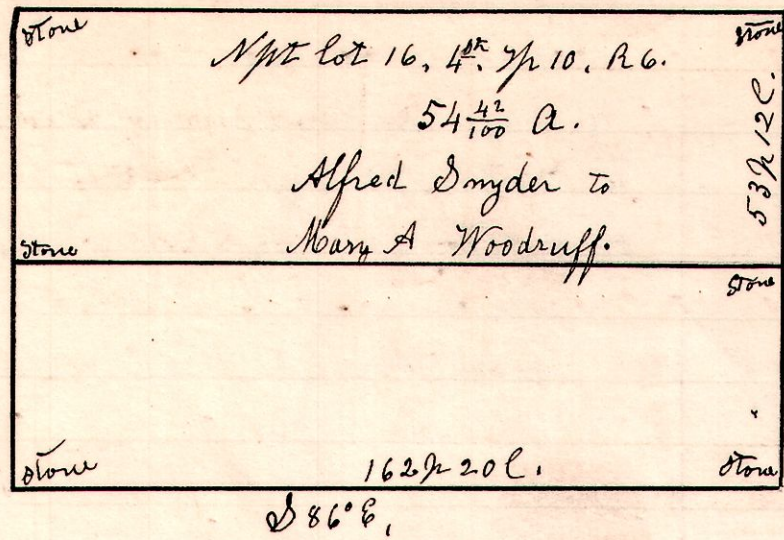 Stone Stone
N pt lot 16, 4th qr Tp 10, R 6.
54 42/100 A.
53 p 12 l.
Alfred Snyder to
Mary A Woodruff.
Stone
Stone
Stone 162 p 20 l. Stone
S 86° E,